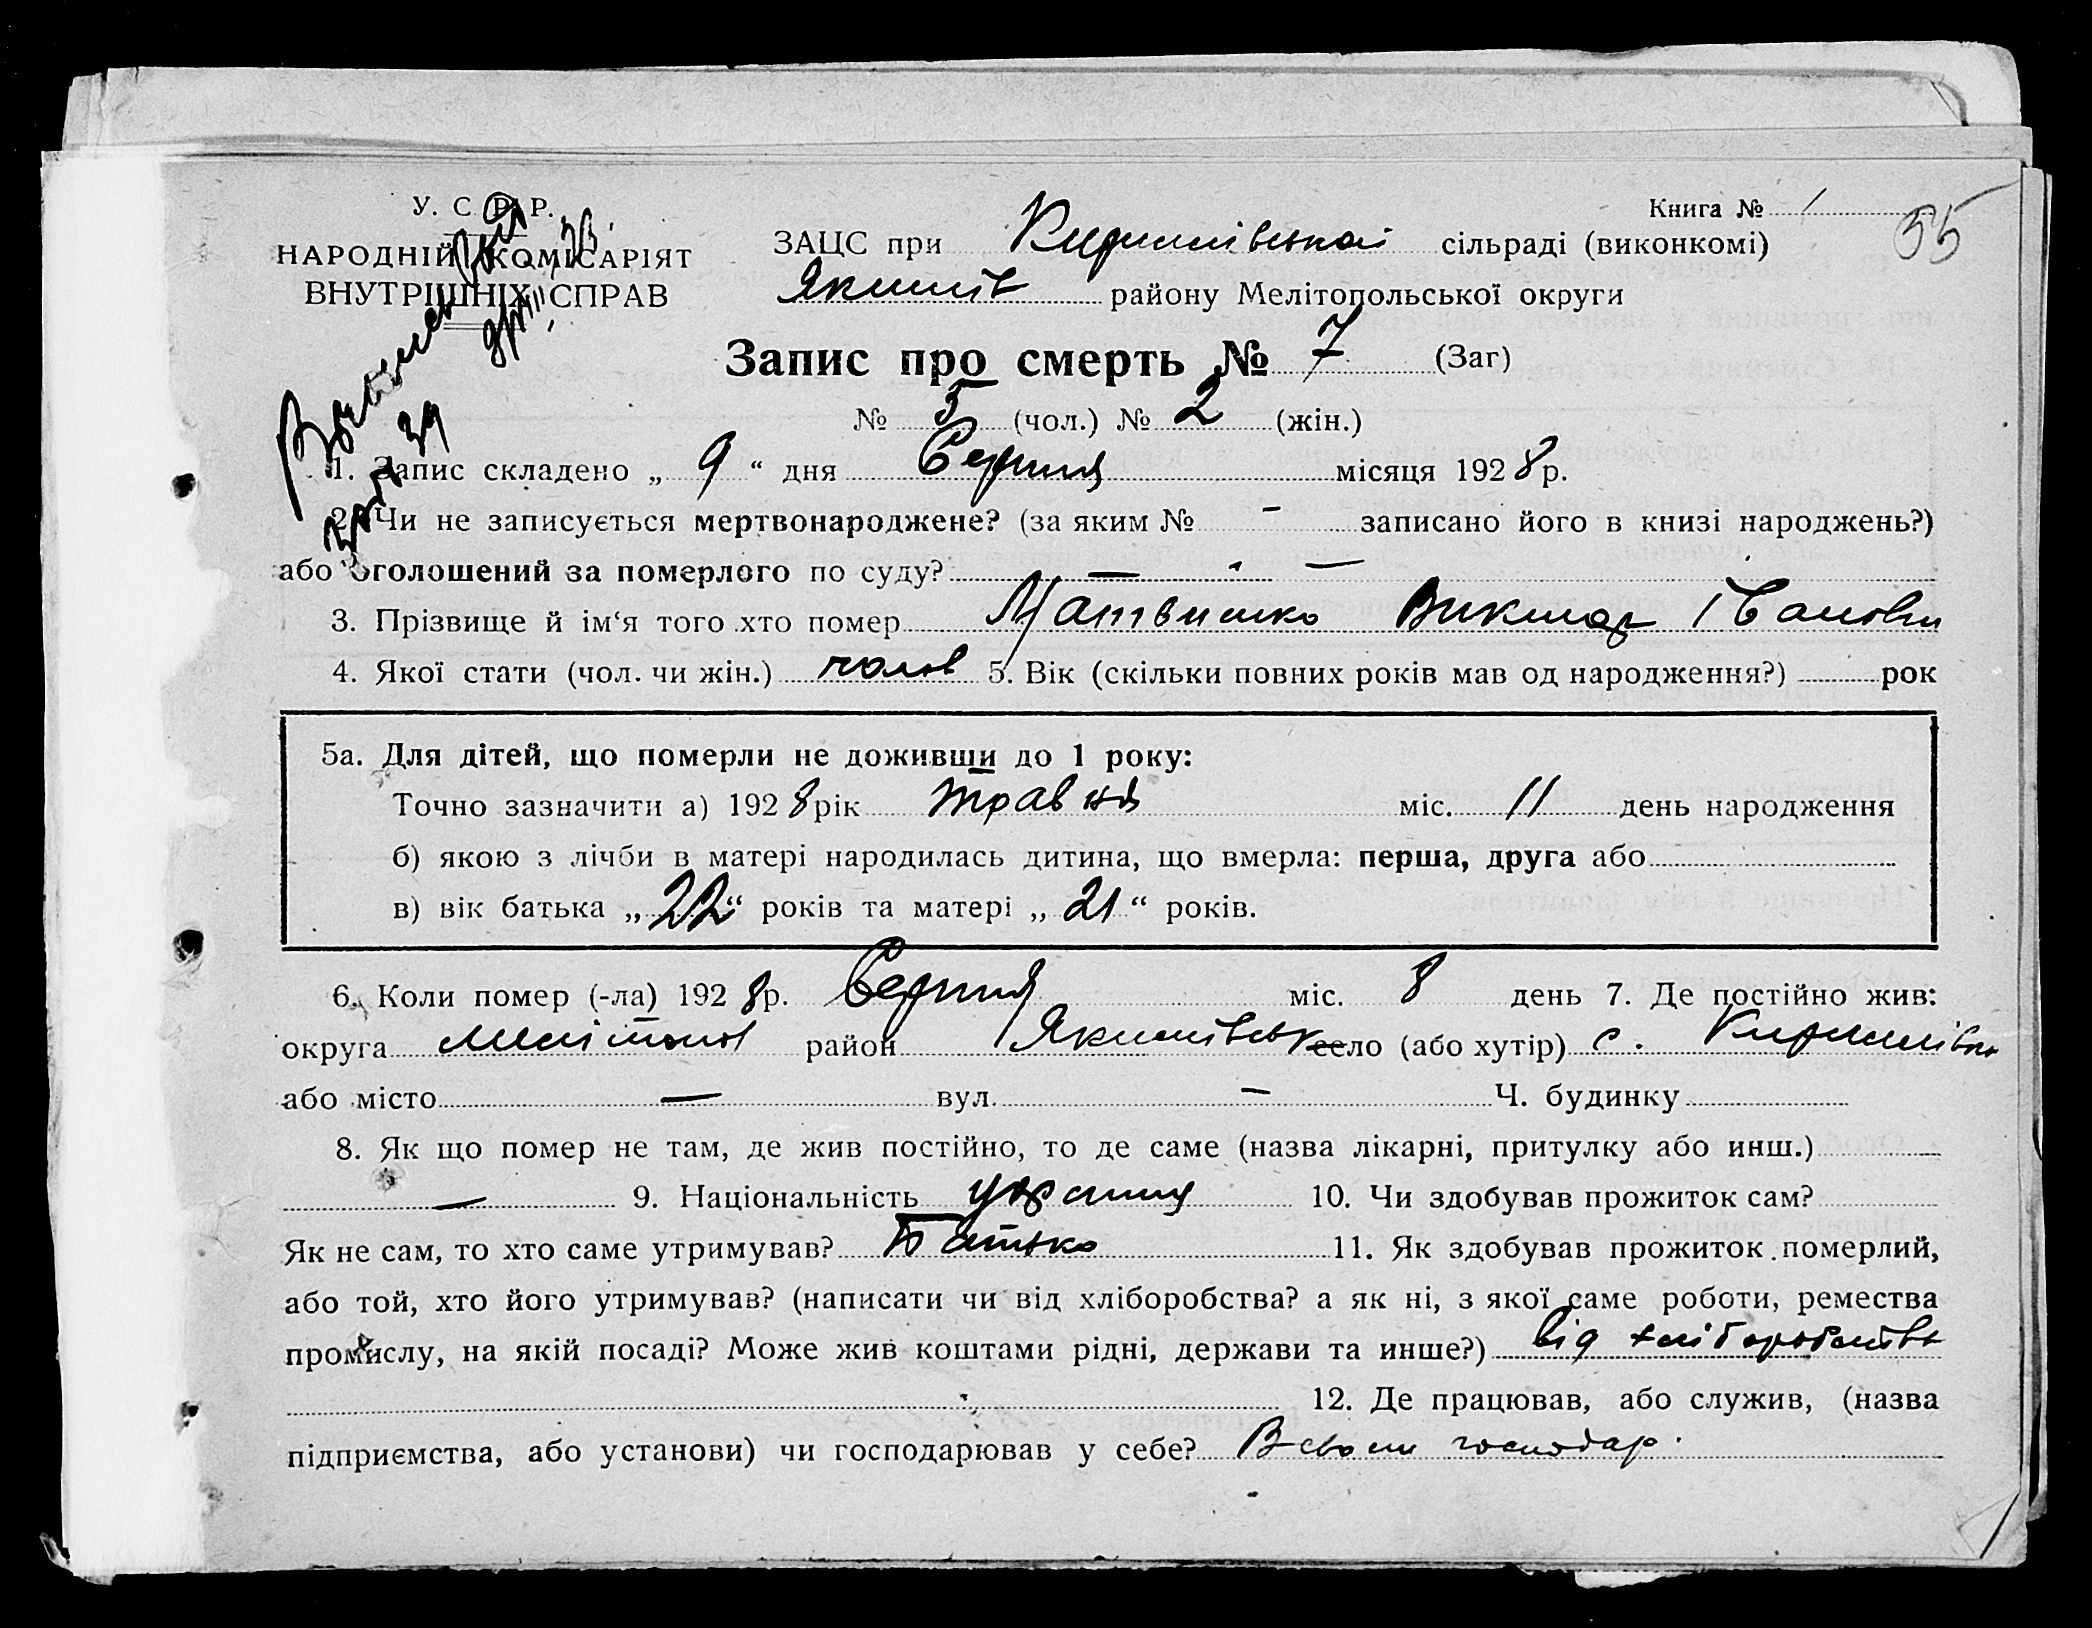 У. С. Р. Р.
НАРОДНІЙ КОМІСАРІЯТ
ВНУТРІШНІХ СПРАВ
Книга № 1
55
ЗАЦС при Кирилівській сільраді (виконкомі)
Якимів району Мелітопольської округи
Запис про смерть № 7 (Заг)
№ 5 (чол.) № 2 (жін.)
1. Запис складено „ 9 “ дня Серпня місяця 1928 р.
2. Чи не записується мертвонароджене? (за яким № - записано його в книзі народжень?)
або оголошений за померлого по суду? — —
3. Прізвище й ім‘я того хто помер Матвиенко Виктор Іванович
4. Якої стати (чол. чи жін.) чолов 5. Вік (скільки повних років мав од народження?) рок
5а. Для дітей, що померли не доживши до 1 року:
Точно зазначити а) 1928 рік травня міс. 11 день народження
б) якою з лічби в матері народилась дитина, що вмерла: перша, друга або
в) вік батька „ 22 “ років та матері „ 21 “ років.
6. Коли помер (-ла) 1928 р. Серпня міс. 8 день 7. Де постійно жив:
округа Мелітопол район Якимівськ село (або хутір) с. Кирилівка
або місто — вул. — Ч. будинку
8. Як що помер не там, де жив постійно, то де саме (назва лікарні, притулку або инш.)
— 9. Національність 10. Чи здобував прожиток сам?
Як не сам, то хто саме утримував? Батько 11. Як здобував прожиток померлий,
або той, хто його утримував? (написати чи від хліборобства? а як ні, з якої саме роботи, ремества
промислу, на якій посаді? Може жив коштами рідні, держави та инше?) від хліборобства
12. Де працював, або служив, (назва
підприємства, або установи) чи господарював у себе? В своєм господар.